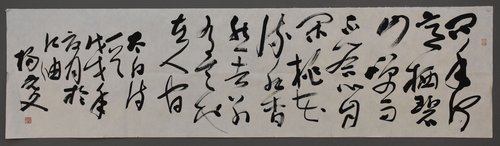 问余何
意栖碧
山笑而
不答心自
闲桃花
流水杳
然去别
有天地
非人间
太白诗
一首
戊戌年
月於
江油
杨